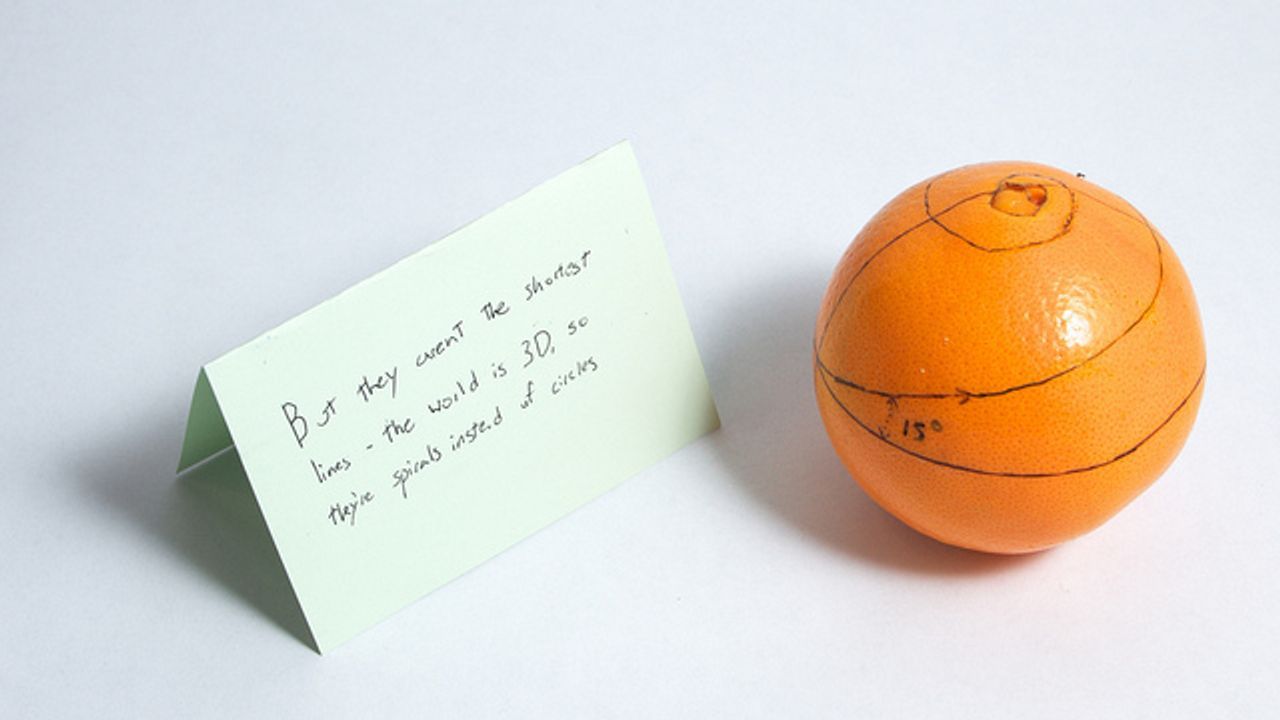 But they weren't the shortest
lines - the world is 3D, so
they're spirals instead of circles
15°